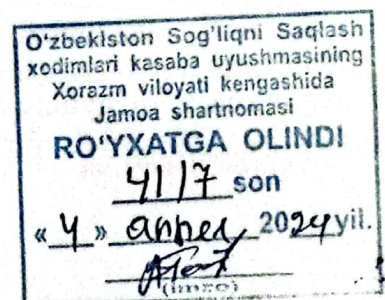 O'zbekiston Sog'liqni Saqlash
xodimlari kasaba uyushmasining
Xorazm viloyati kengashida
Jamoa shartnomasi
RO'YXATGA OLINDI
41/7 son
«4» апрел 2024 yil.
(imzo)